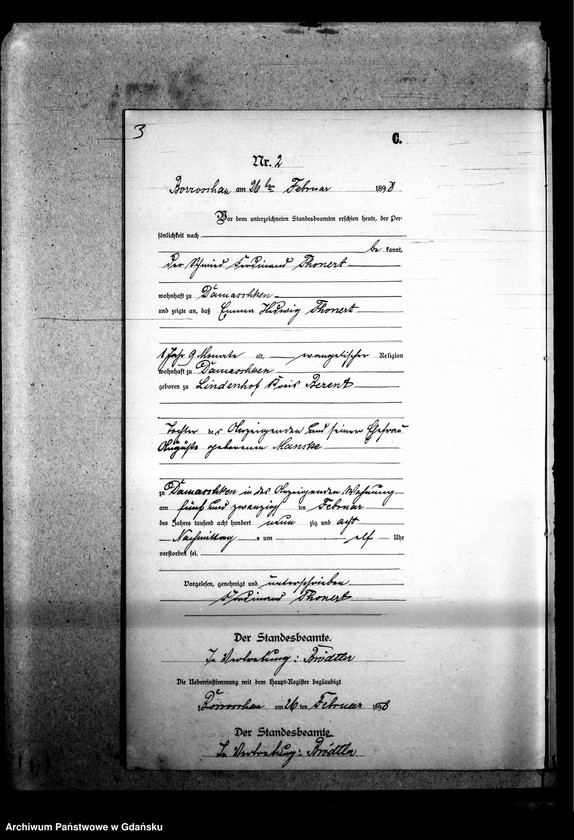 3
C.
Nr. 2
Borroschau am 26ten Februar 1898
Vor dem unterzeichneten Standesbeamten erschien heute, der Per-
sönlichkeit nach
be kannt,
der Schmied Ferdinand Thonert
wohnhaft zu Damaschken
und zeigte an, daß Emma Hedwig Thonert
1 Jahr 9 Monate alt, evangelischer Religion
wohnhaft zu Damaschken
geboren zu Lindenhof Kreis Berent
Tochter des Anzeigenden und seiner Ehefrau
Auguste geborenen Manske
zu Damaschken in des Anzeigenden Wohnung
am fünf und zwanzigsten Februar
des Jahres tausend acht hundert neun zig und acht
Nachmittag s um elf Uhr
verstorben sei.
Vorgelesen, genehmigt und unterschrieben
Ferdinand Thonert
Der Standesbeamte.
In Vertretung: Brödtler
Die Uebereinstimmung mit dem Haupt-Register beglaubigt
Borroschau am 26ten Februar 1898
Der Standesbeamte.
In Vertretung: Brödtler
Archiwum Państwowe w Gdańsku